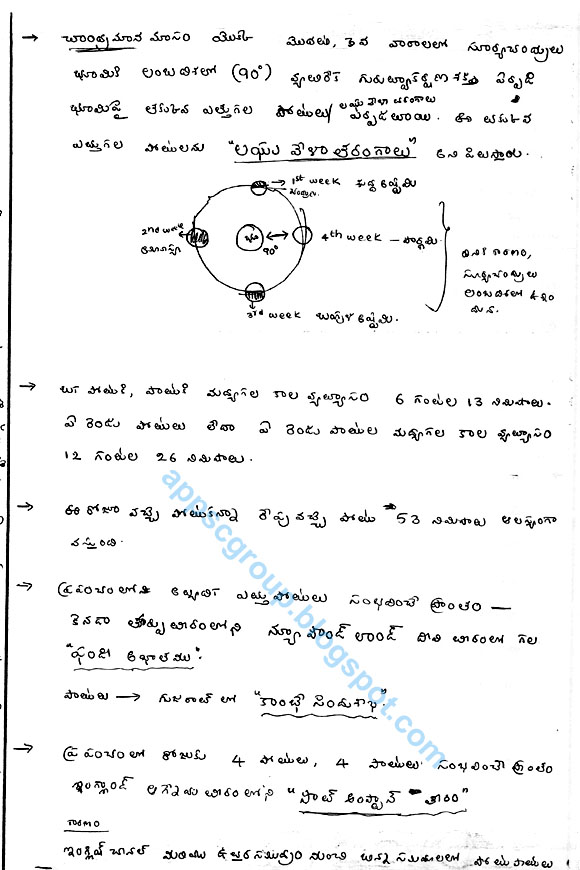 → చాంద్రమాన మాసం యొక్క మొదటి, 3వ వారాలలో సూర్యచంద్రులు
భూమికి లంబదిశలో (90°) వ్యతిరేక గురుత్వాకర్షణశక్తి ఏర్పడి
భూమిపై తక్కువ ఎత్తుగల పోటులు/ లఘు వేళా తరంగాలు ఏర్పడతాయి. ఈ తక్కువ
ఎత్తుగల పోటులను "లఘు వేళా తరంగాలు" అని పిలుస్తారు.
→ 1st week శుద్ధ అష్టమి
చంద్రుడు
2nd week
భూమి
90°
4th week – పౌర్ణమి
3rd week బహుళ అష్టమి.
సూర్యచంద్రులు
లంబదిశలో
→ ఒక పోటుకి, పాటుకి మధ్యగల కాల వ్యత్యాసం 6 గంటల 13 నిమిషాలు.
ఏ రెండు పోటులు లేదా ఏ రెండు పాటుల మధ్యగల కాల వ్యత్యాసం
12 గంటల 26 నిమిషాలు.
→ ఈ రోజు వచ్చే పోటుకన్నా రేపు వచ్చే పోటు 53 నిమిషాలు ఆలస్యంగా
వస్తుంది.
→ ప్రపంచంలోనే అత్యధిక ఎత్తు పోటులు సంభవించే ప్రాంతం —
కెనడా తూర్పు తీరంలోని న్యూ ఫౌండ్ లాండ్ దీవి తీరంలో గల
"ఫండీ అఖాతము".
పాటులు → గుజరాత్ లో "కాంబే సింధుశాఖ".
→ ప్రపంచంలో రోజుకు 4 పోటులు, 4 పాటులు సంభవించే ప్రాంతం
ఇంగ్లాండ్ ఆగ్నేయ తీరంలోని "సౌత్ అంప్టాన్ తీరం"
కారణం
ఇంగ్లీష్ చానల్ మరియు ఉత్తర సముద్రం నుంచి భిన్న సమయాలలో పోటుపాటులు
appscgroup.blogspot.com